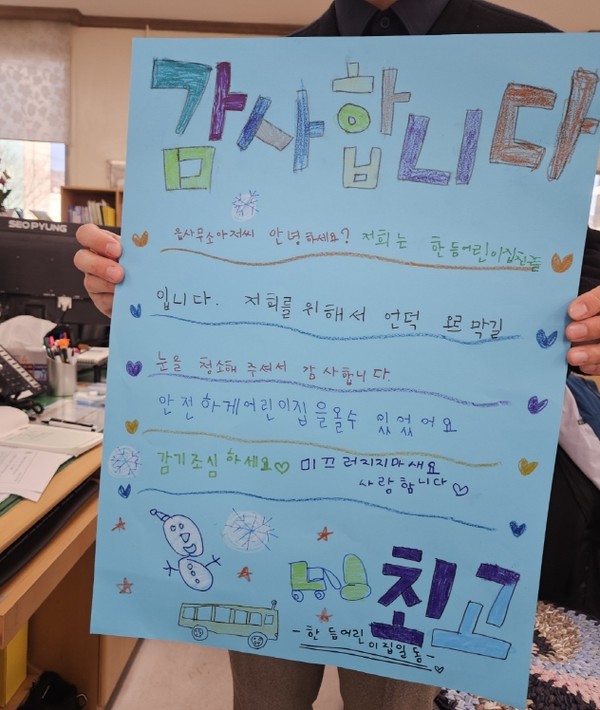 SEOPYUNG
감사합니다
읍사무소아저씨 안녕하세요? 저희는 한듬어린이집친구들
입니다. 저희를 위해서 언덕 오르막길
눈을 청소해 주셔서 감사합니다.
안전하게어린이집을올수 있었어요
감기조심하세요♡ 미끄러지지마세요
사랑합니다♡
최고
- 한듬어린이집일동 -